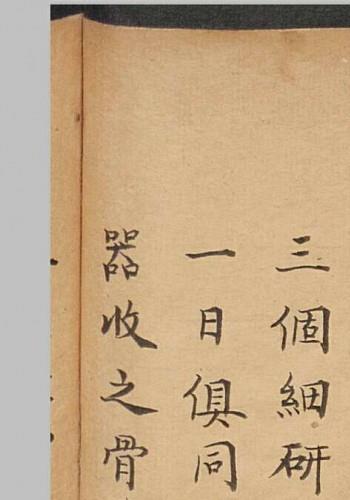 三個細研
一日俱同
器收之骨